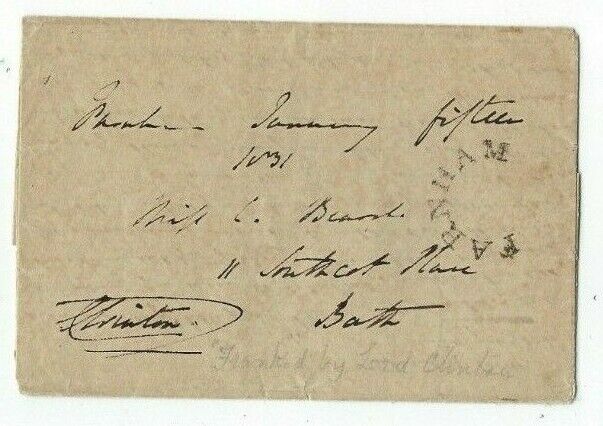 January fifteen
1831
FARNHAM
Miss C. Beard
11 Southcot Place
Bath
Clinton
"Franked by Lord Clinton"